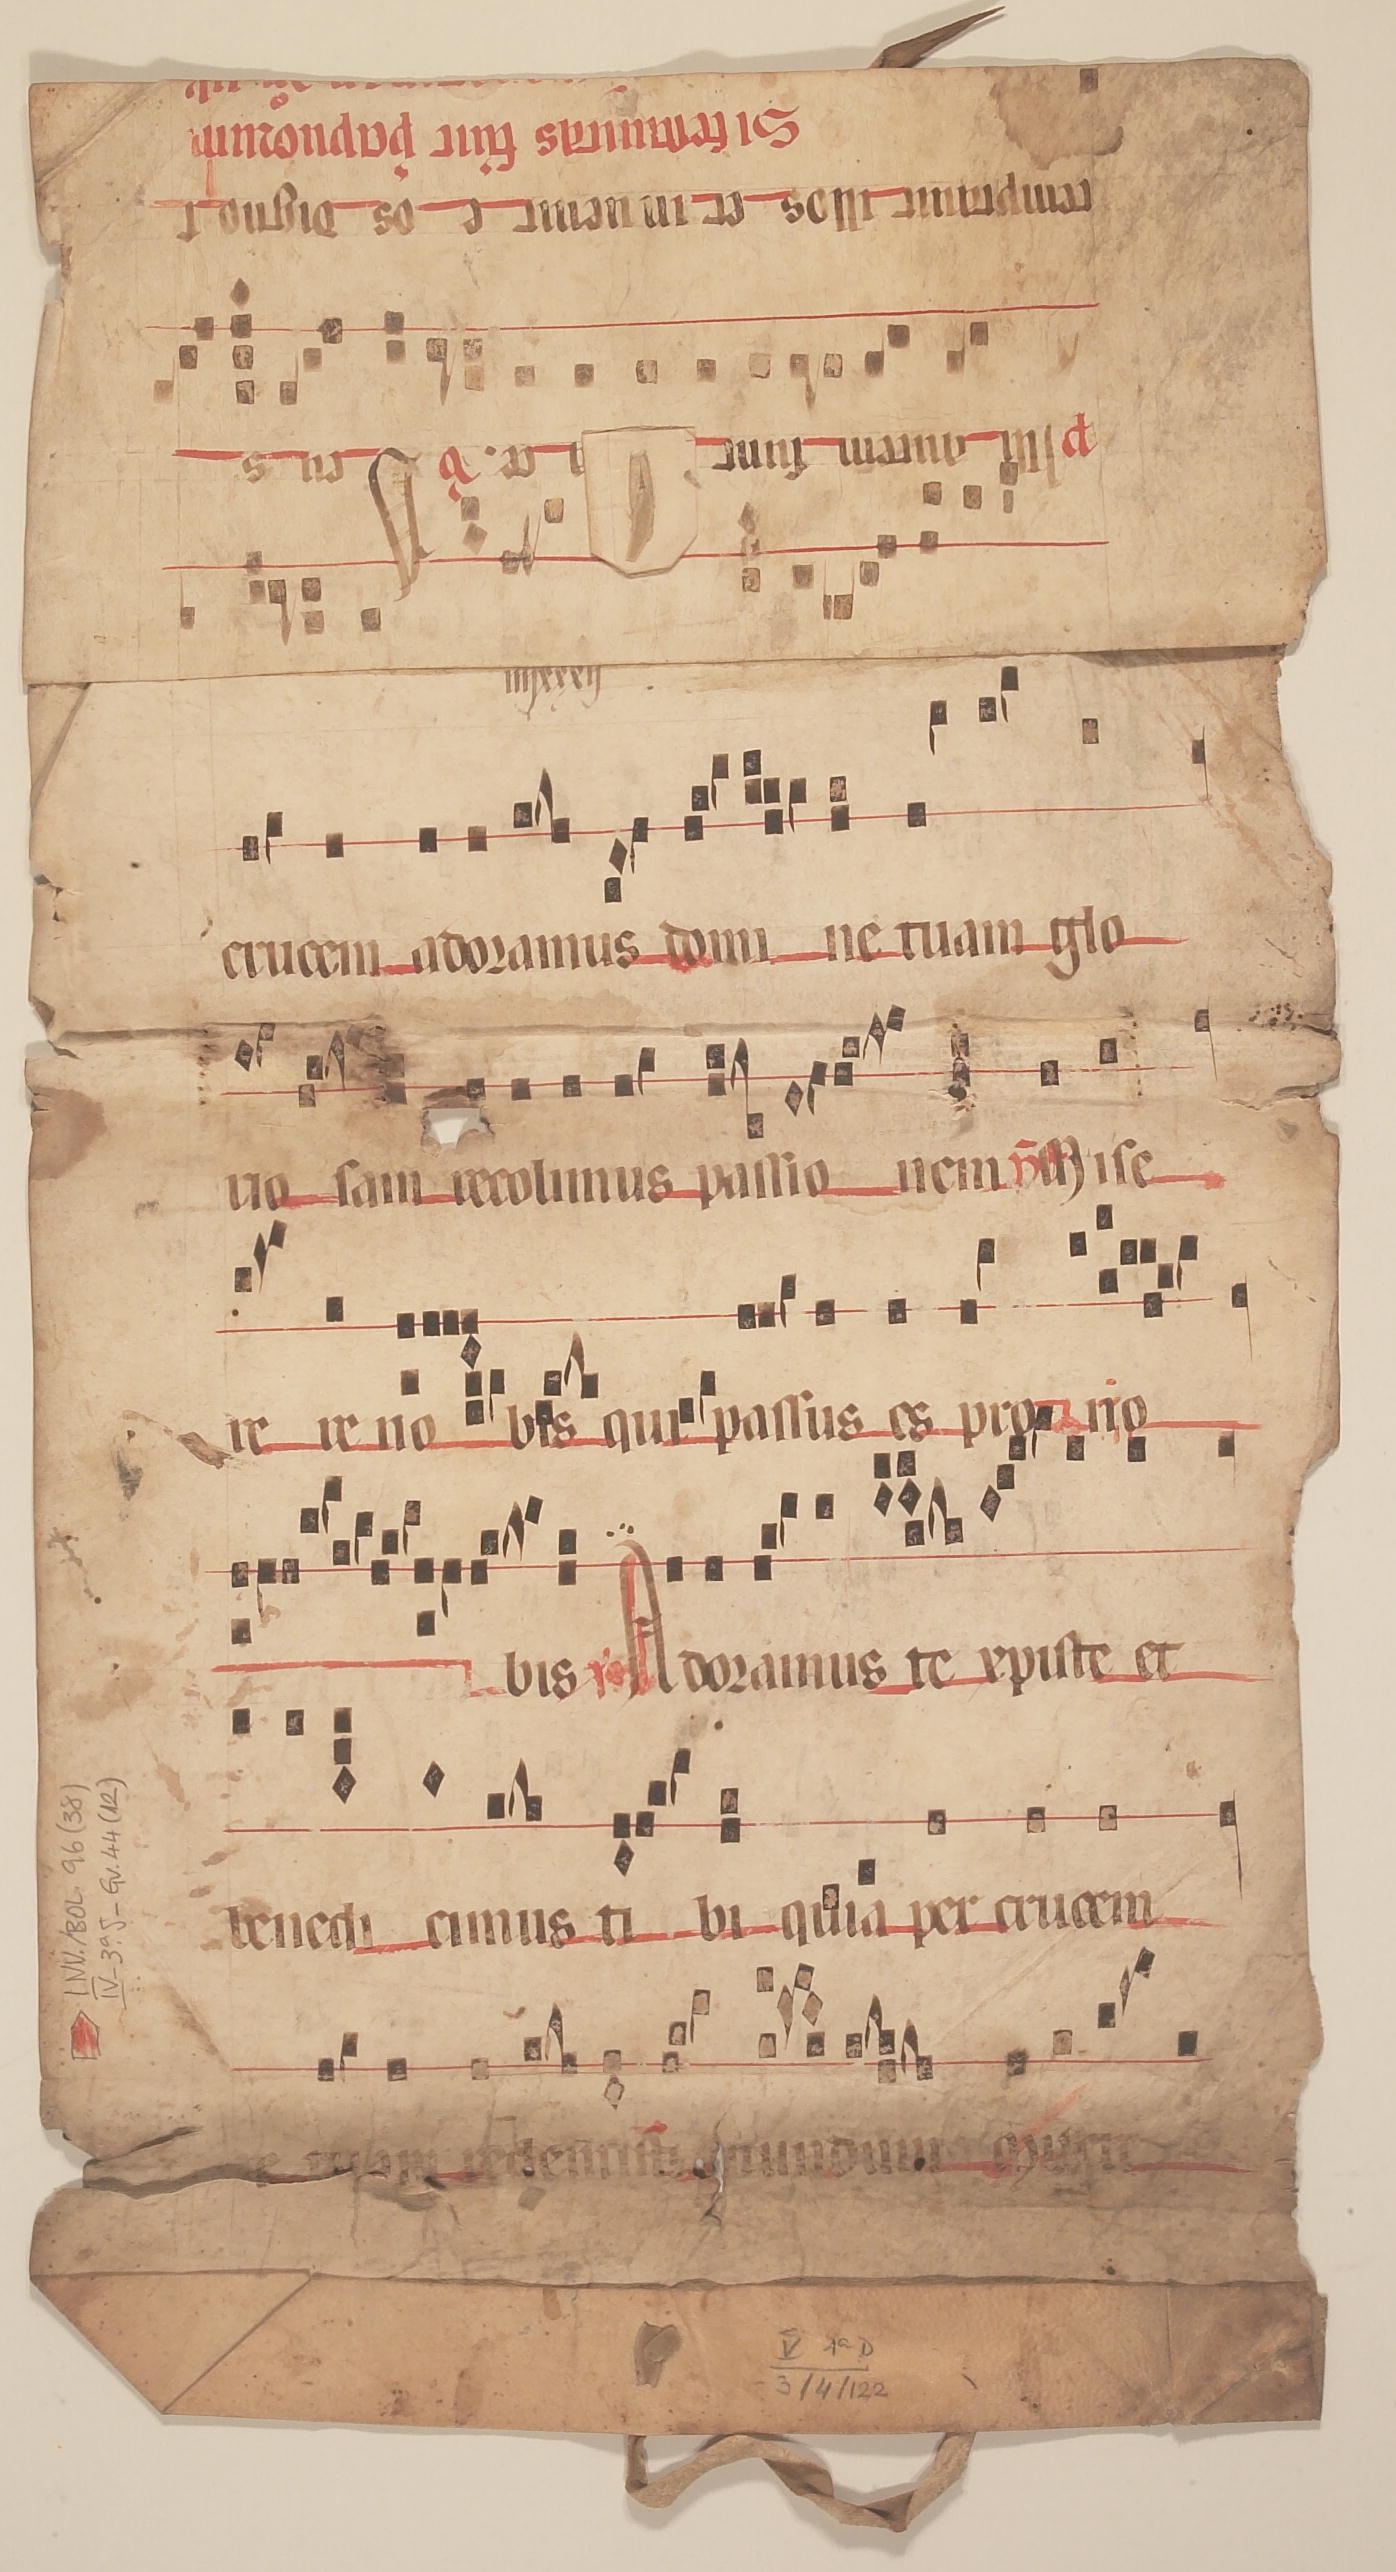 Si festiuitas fiūt
temptauit illos et inuenit e os dignos
illi autem sunt
crucem adoramus domi ne tuam glo
rio sam recolimus passio nem Mise
re re no bis qui passus es pro no
bis Adoramus te xpiste et
benedi cimus ti bi quia per crucem
tuam redemisti mundum
INV./BOL. 96 (38)
IV-3ª J-Gv. 44 (12)
V 1ª D
3/4/122